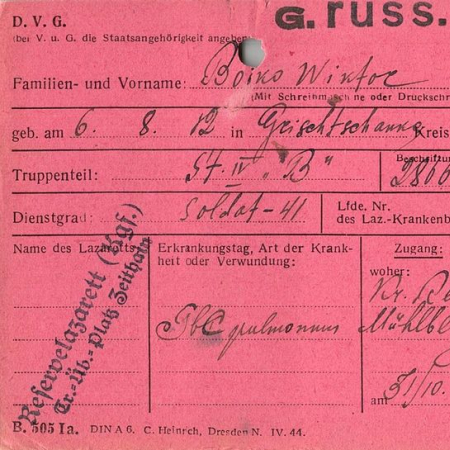 D. V. G.
G. russ.
(bei V. u. G. die Staatsangehörigkeit angeben)
Familien- und Vorname: Boiko Wiktor
(Mit Schreibmaschine oder Druckschr
geb. am 6. 8. 12 in Kreis
Truppenteil: St. IV "B"
Beschriftun
Dienstgrad: Soldat-41
Lfde. Nr.
des Laz.-Krankenb
Name des Lazaretts:
Erkrankungstag, Art der Krank-
heit oder Verwundung:
Zugang:
woher:
Reservelazarett (Kgf.)
Tr.-Üb.-Platz Zeithain
Tbc pulmonum
Mühlb
am 31/10.
B. 505 Ia. DIN A 6. C. Heinrich, Dresden N. IV. 44.